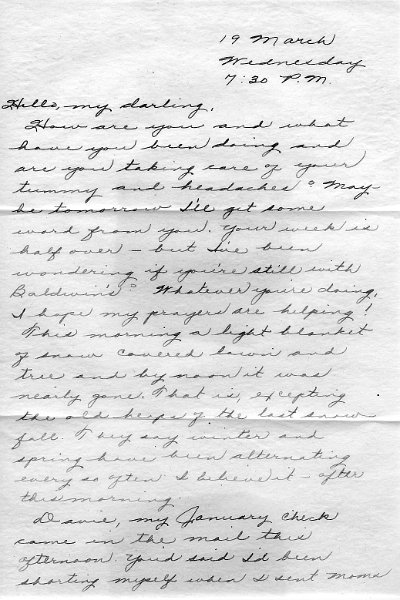 19 March
Wednesday
7:30 P.M.
Hello, my darling,
How are you and what
have you been doing and
are you taking care of your
tummy and headaches? May-
be tomorrow I'll get some
word from you. Your week is
half over – but I've been
wondering if you're still with
Baldwin's? Whatever you're doing,
I hope my prayers are helping!
This morning a light blanket
of snow covered lawn and
tree and by noon it was
nearly gone. That is, excepting
the old heaps of the last snow
fall. They say winter and
spring have been alternating
every so often I believe it – after
this morning.
Davie, my January check
came in the mail this
afternoon. You'd said I'd been
shorting myself when I sent Moms